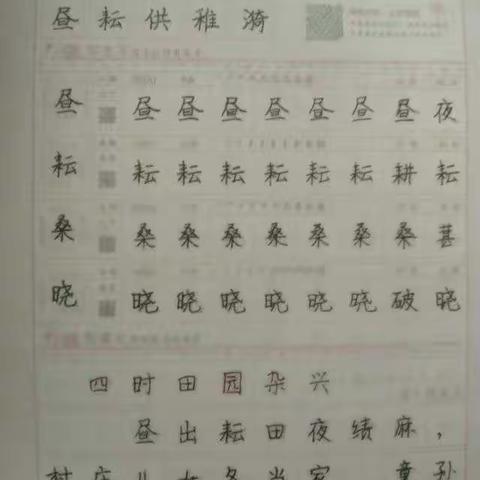 昼 耘 供 稚 漪
昼 昼 昼 昼 昼 昼 昼 昼 夜
耘 耘 耘 耘 耘 耘 耘 耕 耘
桑 桑 桑 桑 桑 桑 桑 桑 葚
晓 晓 晓 晓 晓 晓 晓 破 晓
四 时 田 园 杂 兴
昼 出 耘 田 夜 绩 麻 ，
村 庄 儿 女 各 当 家 童 孙